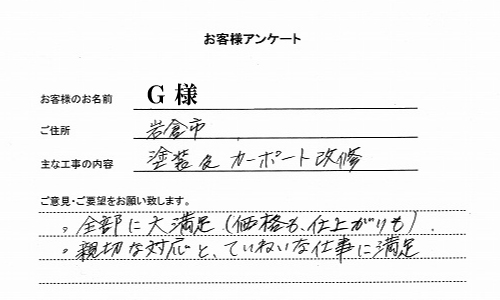 お客様アンケート
お客様のお名前 G 様
ご住所 岩倉市
主な工事の内容 塗装及カーポート改修
ご意見・ご要望をお願い致します。
。全部に大満足(価格も、仕上がりも)。
。親切な対応と、ていねいな仕事に満足